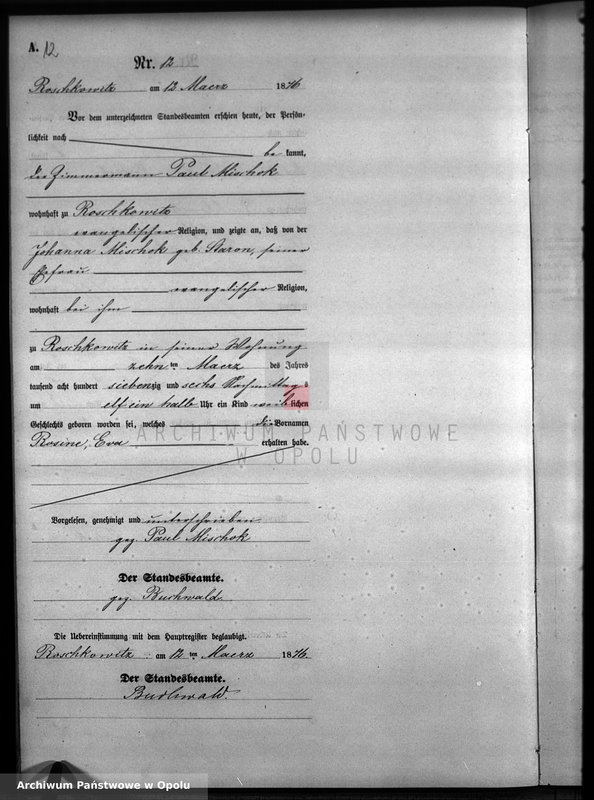 A. 12
Nr. 12
Roschkowitz am 12 Maerz 1876
Vor dem unterzeichneten Standesbeamten erschien heute, der Persön-
lichkeit nach
be kannt,
der Zimmermann Paul Mischok
wohnhaft zu Roschkowitz
evangelischer Religion, und zeigte an, daß von der
Johanna Mischok geb. Staron, seiner
Ehefrau
evangelischer Religion,
wohnhaft bei ihm
zu Roschkowitz in seiner Wohnung
am zehn ten Maerz des Jahres
tausend acht hundert siebenzig und sechs Nachmittags
um elf ein halb Uhr ein Kind weiblichen
Geschlechts geboren worden sei, welches die Vornamen
Rosine, Eva erhalten habe.
ARCHIWUM PAŃSTWOWE
W OPOLU
Vorgelesen, genehmigt und unterschrieben
gez. Paul Mischok
Der Standesbeamte.
gez. Buchwald
Die Uebereinstimmung mit dem Hauptregister beglaubigt.
Roschkowitz am 12 ten Maerz 1876
Der Standesbeamte.
Buchwald.
Archiwum Państwowe w Opolu